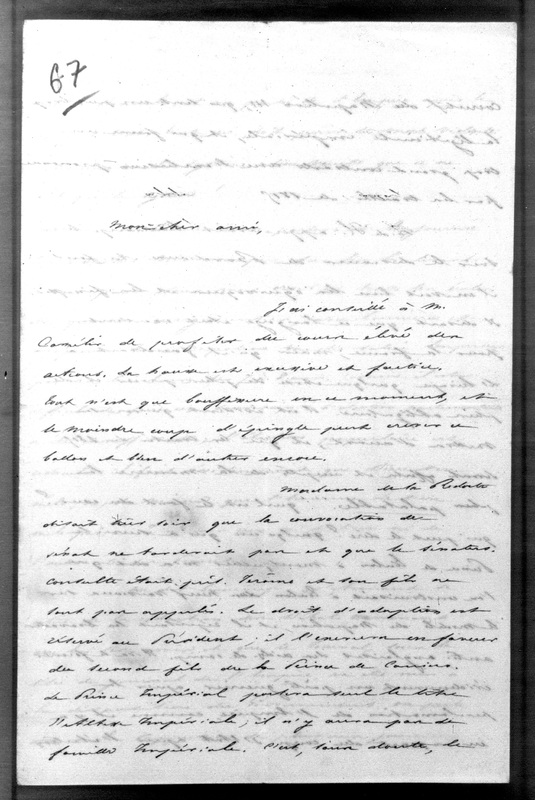 67
Mon cher ami,
J'ai conseillé à M.
Cornélis de profiter du cours élevé des
actions. La hausse est excessive et factice.
Tout n'est que bouffissure en ce moment, et
le moindre coup d'épingle peut crever ce
ballon et bien d'autres encore.
Madame de la Redorte
disait hier soir que la convocation du
Sénat ne tarderait pas et que le Sénatus-
Consulte était prêt. Jérôme et son fils ne
sont pas appelés. Le droit d'adoption est
réservé au Président ; il l'exercera en faveur
du second fils de la Prince de Canino.
Le Prince Impérial portera seul le titre
d'Altesse Impériale ; il n'y aura pas de
famille Impériale. C'est, sans doute, le